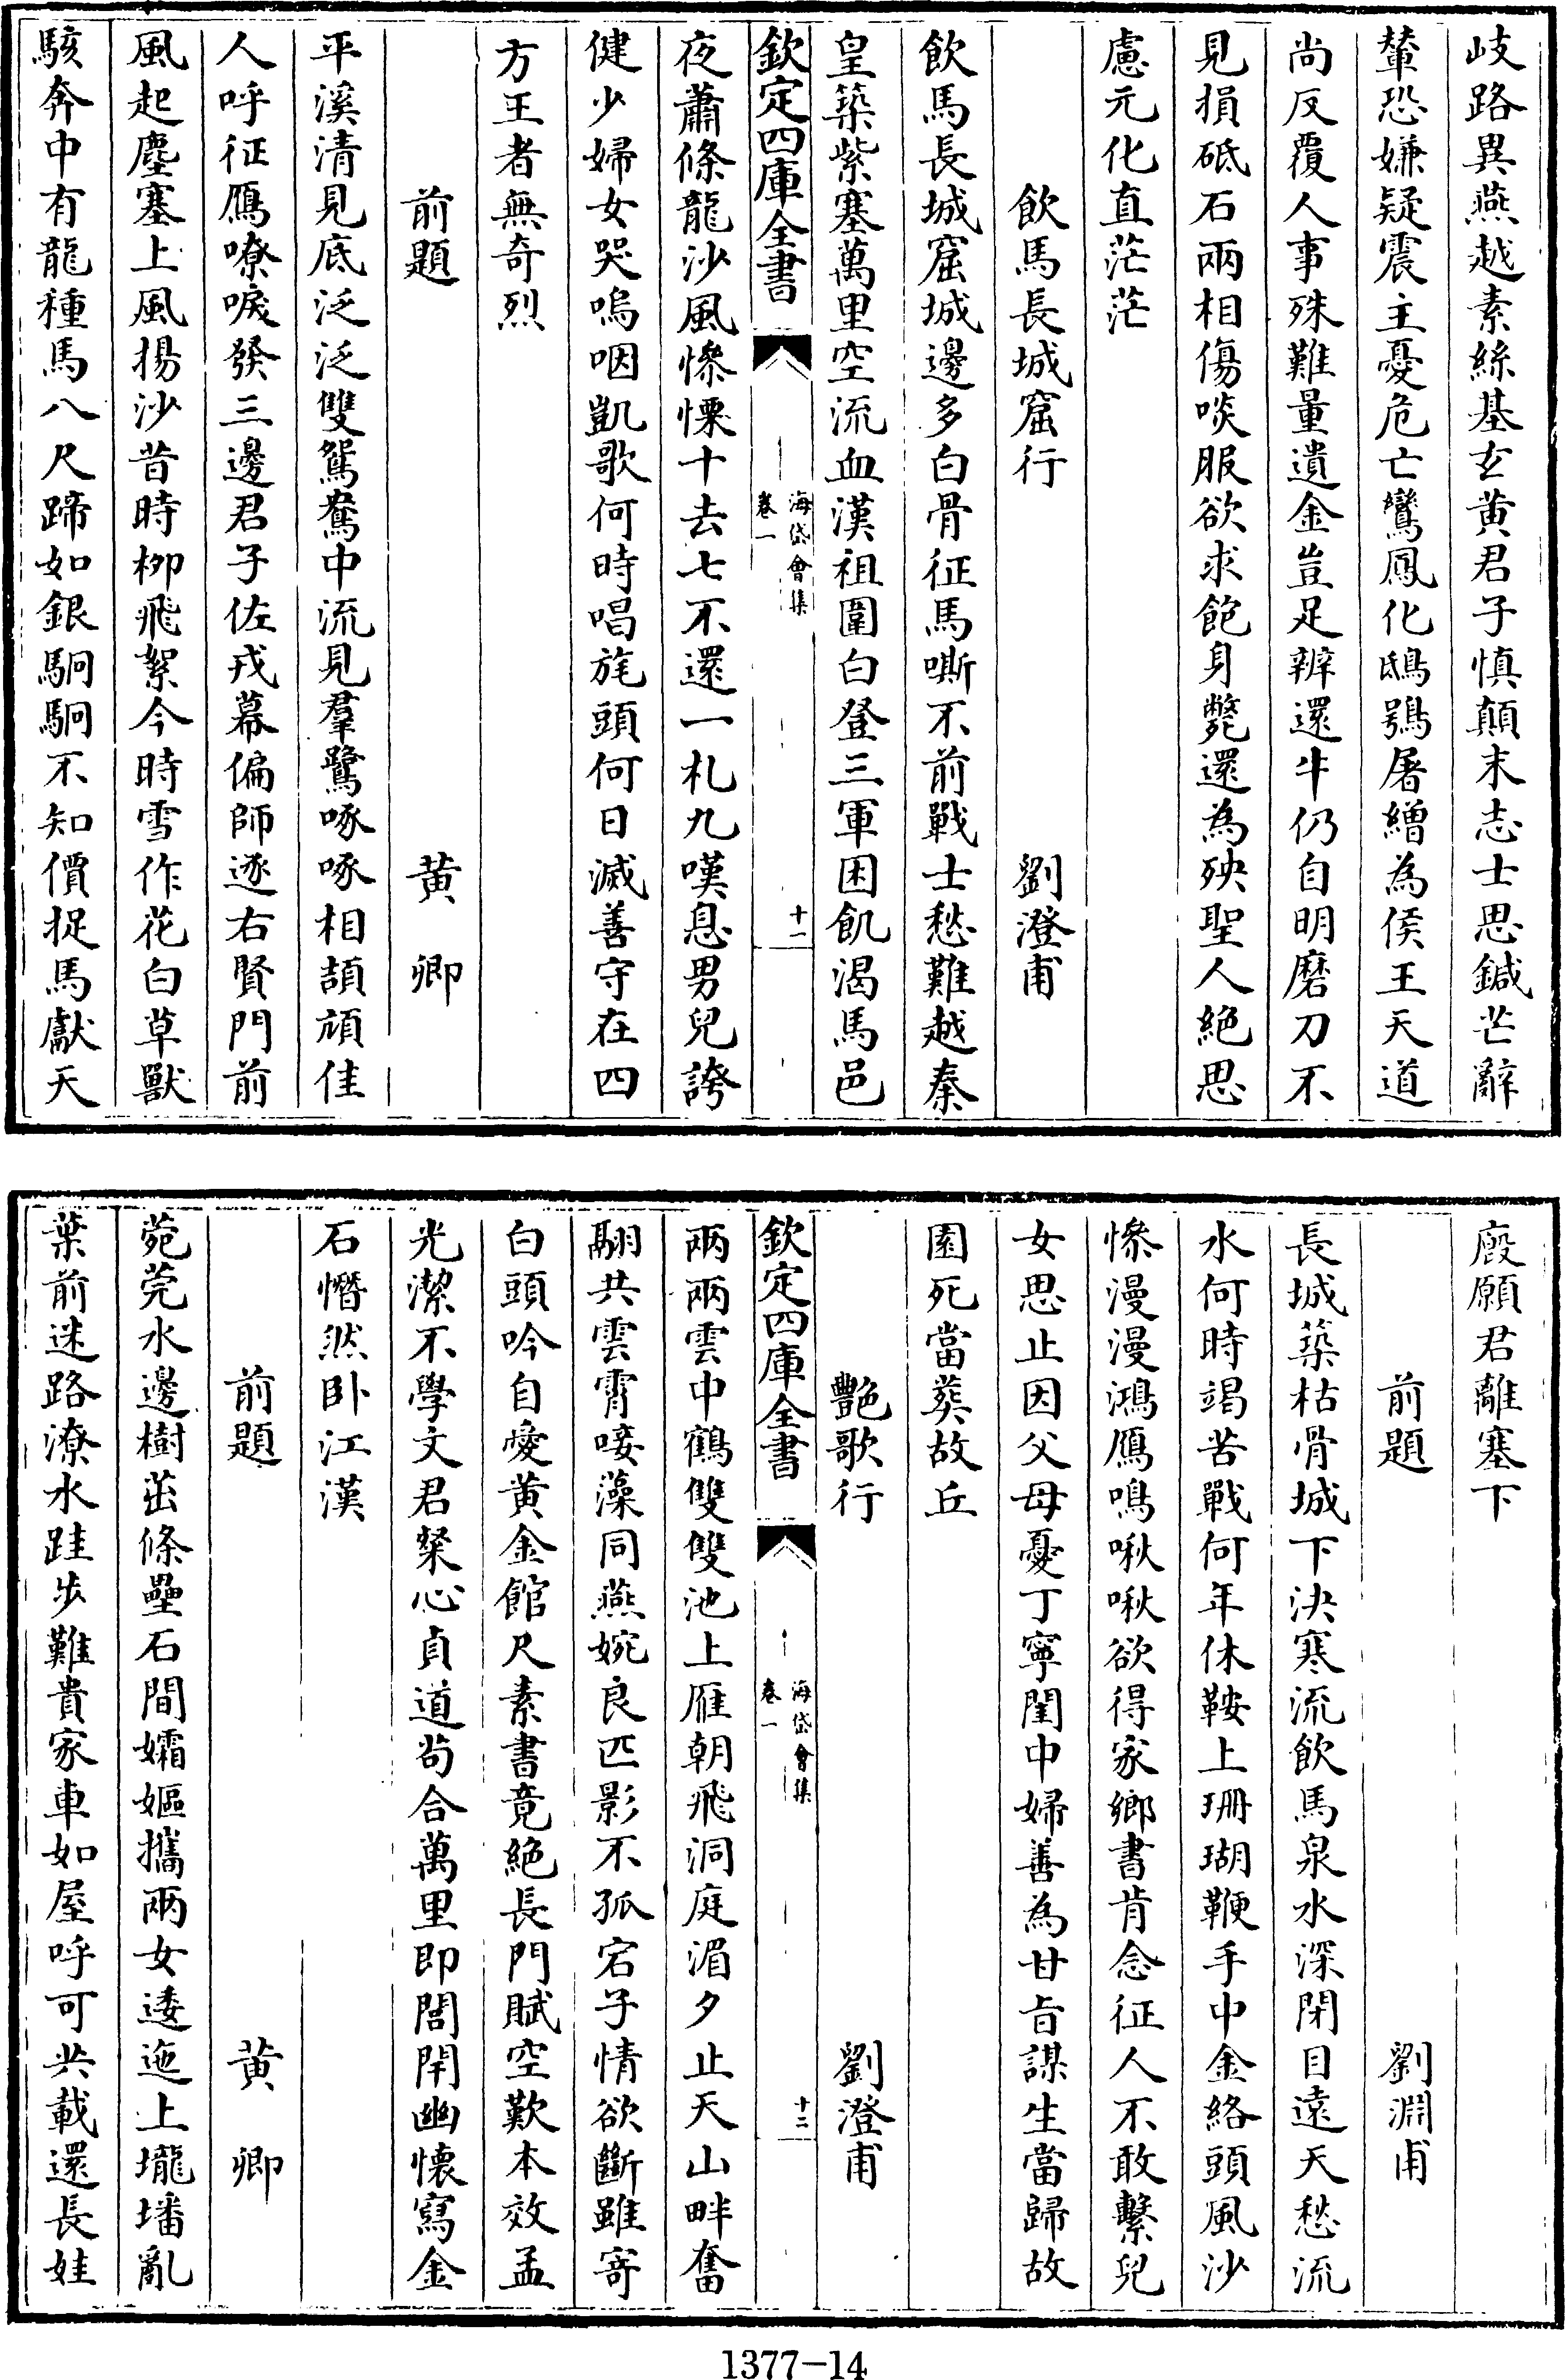 岐路異燕越素絲基玄黄君子慎顛末志士思鍼芒辭
輦恐嫌疑震主憂危亡鸞鳳化鴟鴞屠繒為侯王天道
尚反覆人事殊難量遺金豈足辨還牛仍自明磨刀不
見損砥石兩相傷啖服欲求飽身斃還為殃聖人絶思
慮元化直茫茫
飲馬長城窟行 劉澄甫
飲馬長城窟城邊多白骨征馬嘶不前戰士愁難越秦
皇築紫塞萬里空流血漢祖圍白登三軍困飢渴馬邑
欽定四庫全書 海岱會集 卷一 十一
夜蕭條龍沙風慘慄十去七不還一札九嘆息男兒誇
健少婦女哭嗚咽凱歌何時唱旄頭何日滅善守在四
方王者無奇烈
前題 黄卿
平溪清見底泛泛雙鴛鴦中流見羣鷺啄啄相頡頏佳
人呼征鴈嘹唳發三邊君子佐戎幕偏師逐右賢門前
風起塵塞上風揚沙昔時柳飛絮今時雪作花白草獸
駭奔中有龍種馬八尺蹄如銀駉駉不知價捉馬獻天
廄願君離塞下
前題 劉淵甫
長城築枯骨城下決寒流飲馬泉水深閉目遠天愁流
水何時竭苦戰何年休鞍上珊瑚鞭手中金絡頭風沙
慘漫漫鴻鴈鳴啾啾欲得家鄉書肯念征人不敢繫兒
女思止因父母憂丁寧閨中婦善為甘旨謀生當歸故
園死當葬故丘
艷歌行 劉澄甫
欽定四庫全書 海岱會集 卷一 十二
兩兩雲中鶴雙雙池上雁朝飛洞庭湄夕止天山畔奮
翮共雲霄唼藻同燕婉良匹影不孤宕子情欲斷雖寄
白頭吟自愛黄金館尺素書竟絶長門賦空歎本效孟
光潔不學文君粲心貞道茍合萬里即閭閈幽懷寫金
石憯然卧江漢
前題 黄卿
菀菀水邊樹茁條壘石間孀嫗攜兩女逶迤上壠墦亂
葉前迷路潦水跬步難貴家車如屋呼可共載還長娃
1377-14